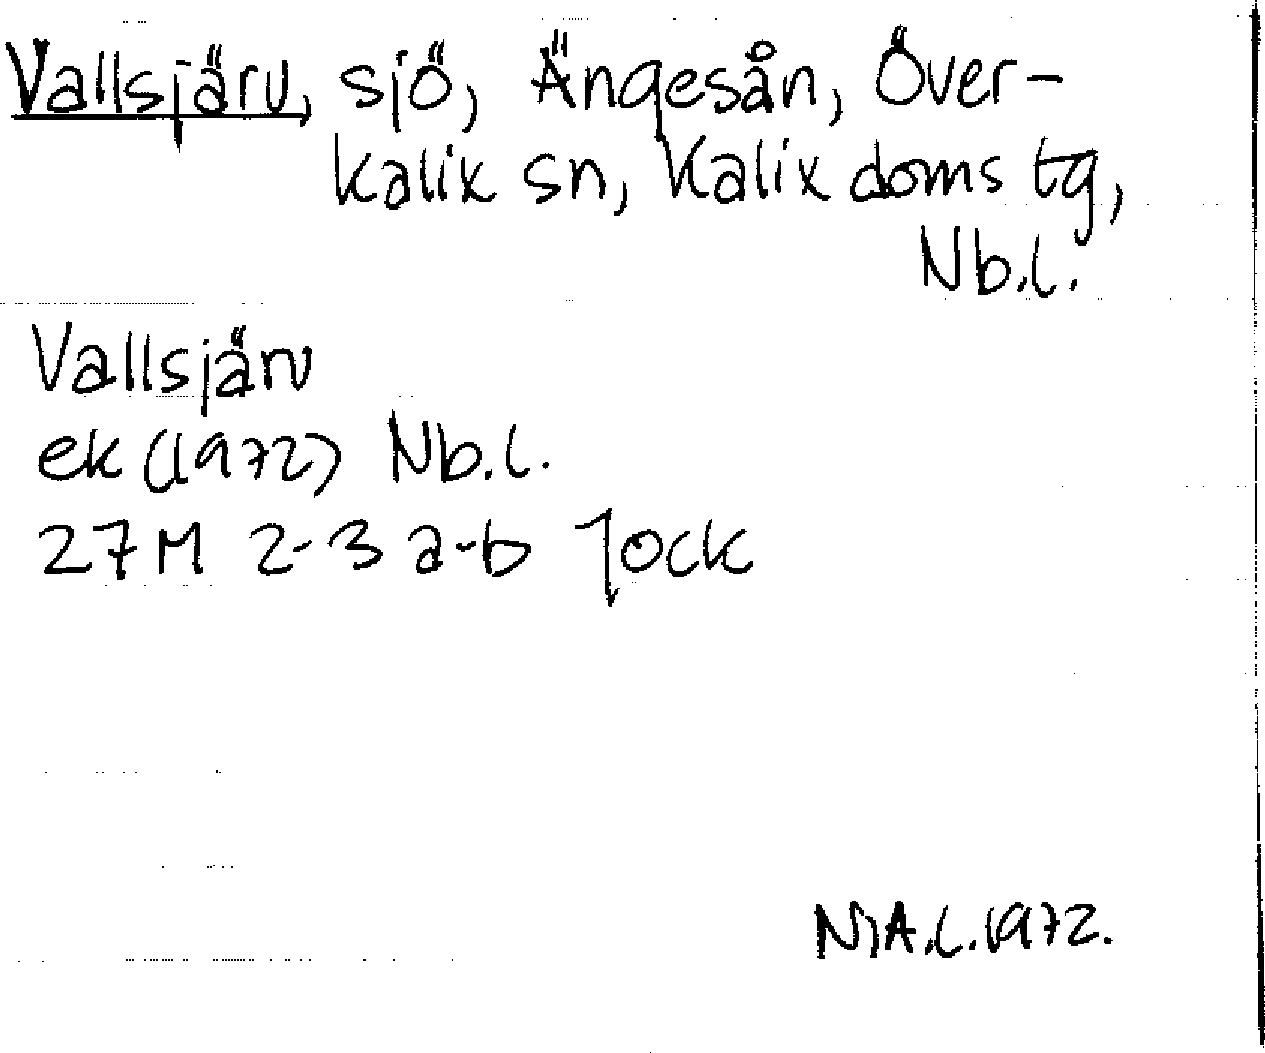 Vallsjärv, sjö, Ängesån, Över-
kalix sn, Kalix doms tg,
Nb.l.
Vallsjärv
ek (1972) Nb.l.
27M 2-3 a-b Jock
NJA.L. 1972.